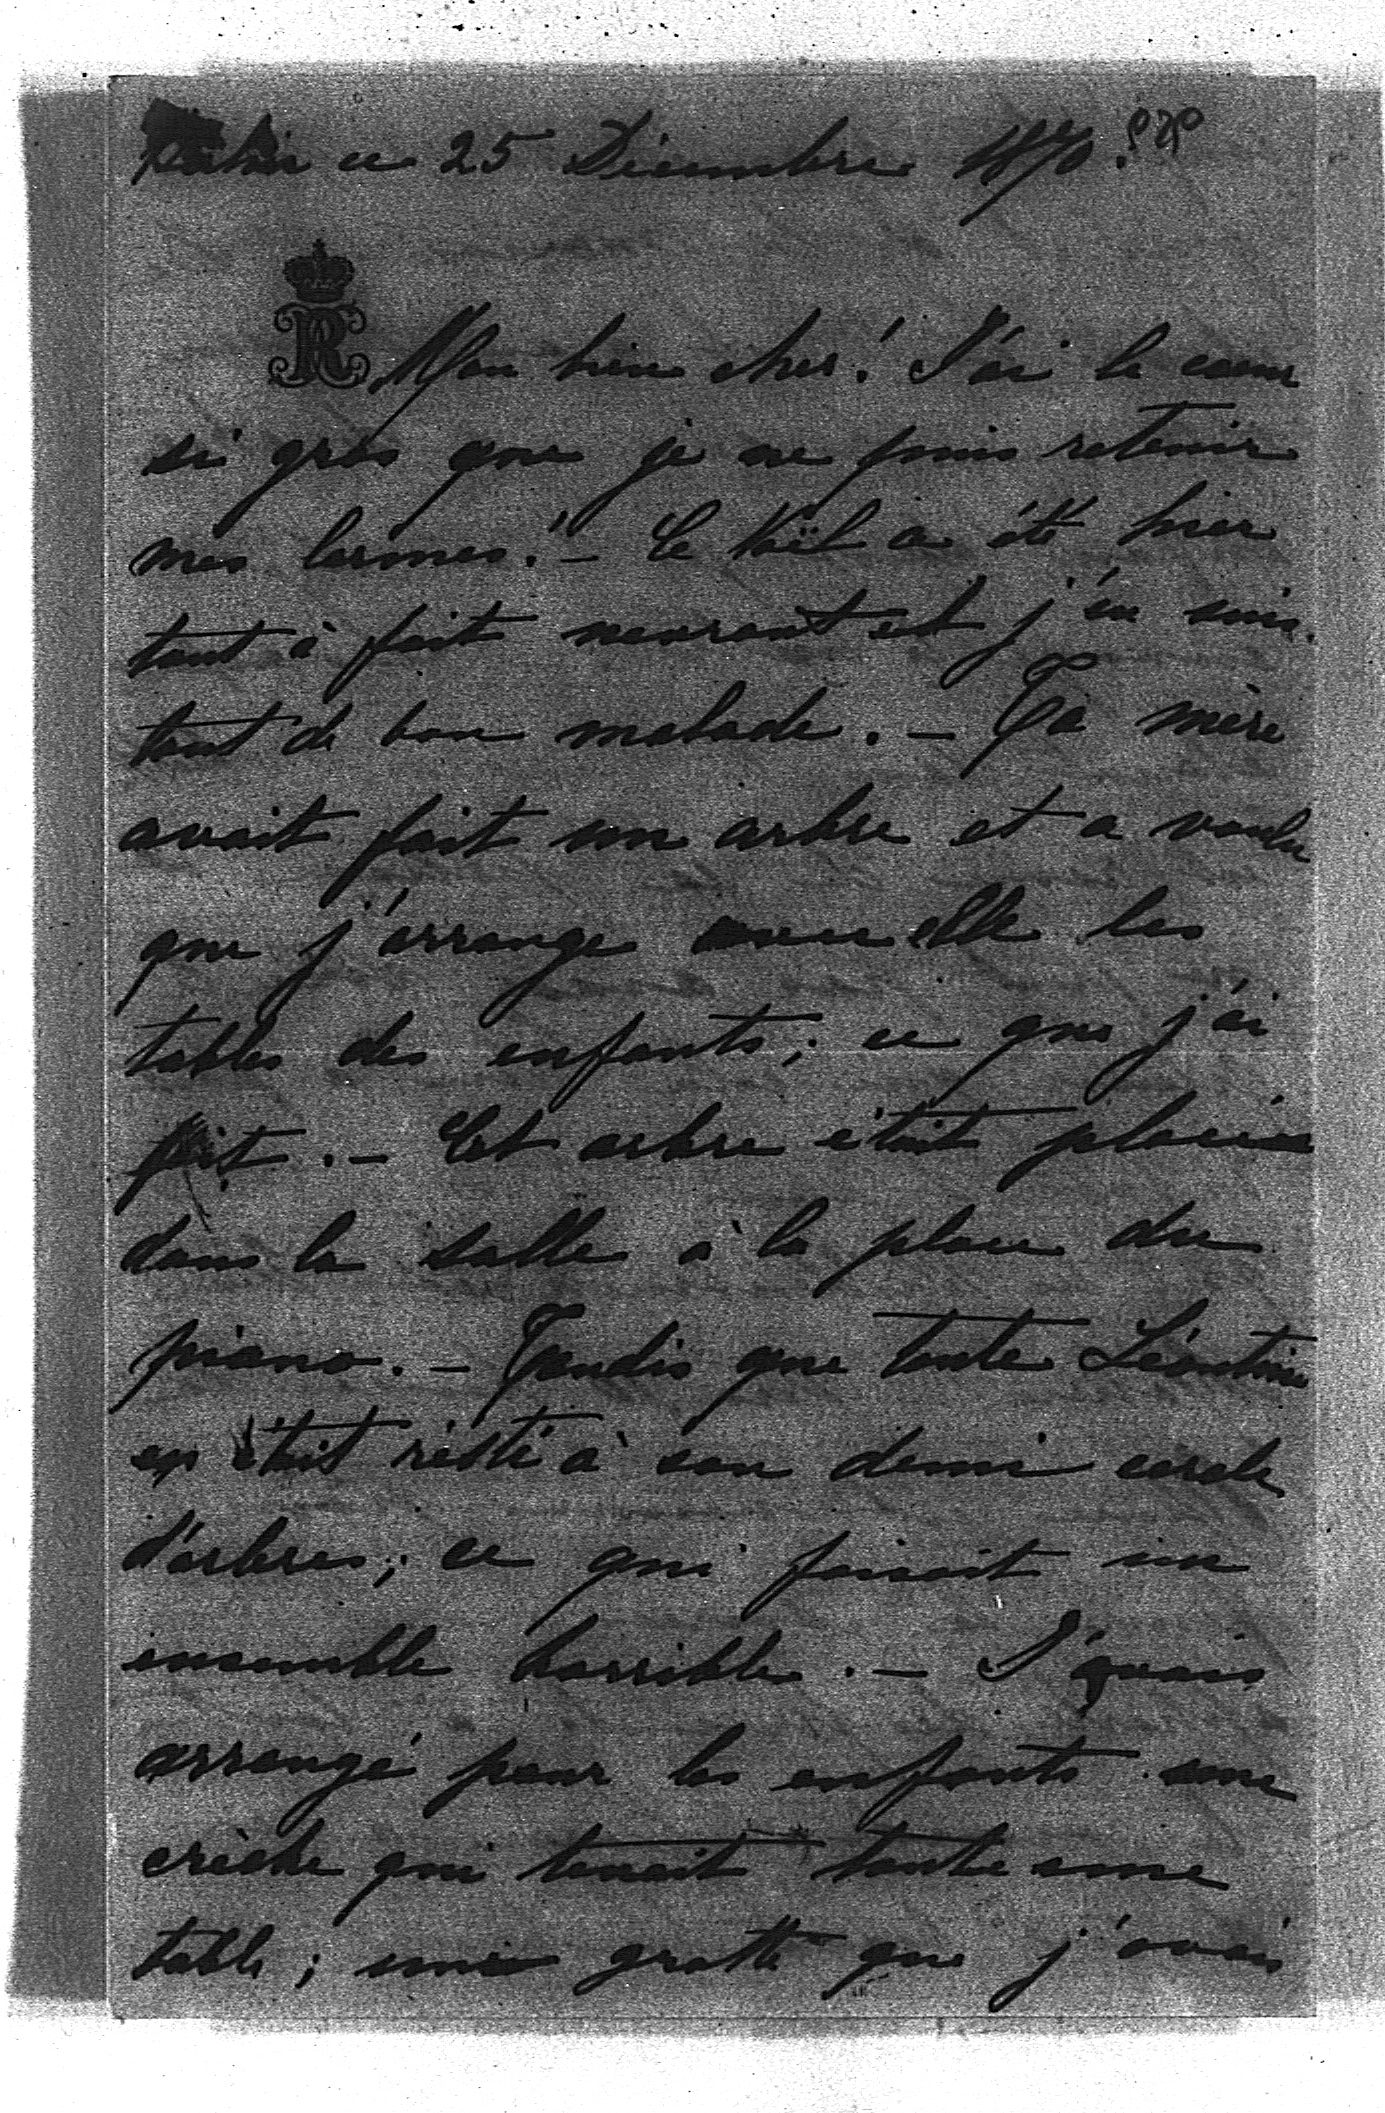 ce 25 Décembre 1870.
Mon bien cher! J'ai le coeur
si gros que je ne puis retenir
mes larmes! – Le Noël a été hier
tout à fait navrant et j'en suis
tout de bon malade. – Ta mère
avait fait un arbre et a voulu
que j'arrange avec elle les
tables des enfants; ce que j'ai
fait. – Cet arbre était placé
dans la salle à la place du
piano. – Tandis que tante Léontine
en était resté à son demi cercle
d'arbres; ce qui faisait un
ensemble horrible. – J'avais
arrangé pour les enfants une
crèche qui tenait toute une
table; une grotte que j'avais